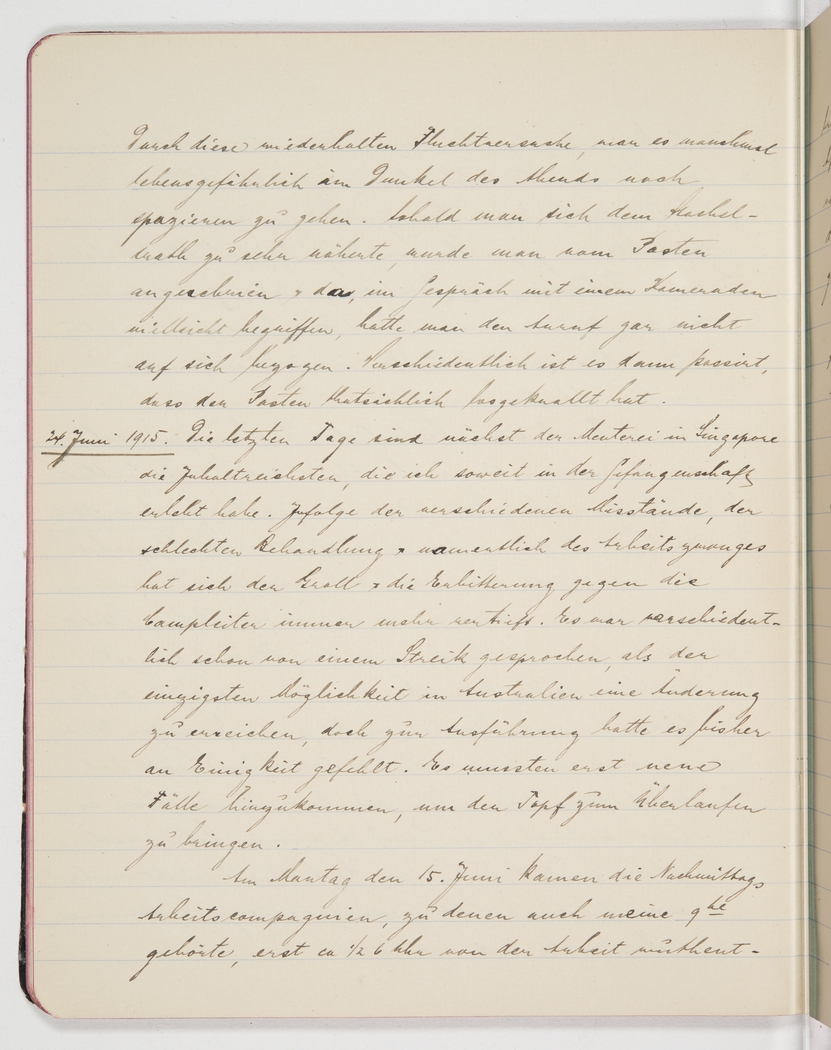 Durch diese wiederholten Fluchtversuche, war es manchmal
lebensgefährlich im Dunkel des Abends noch
spazieren zu gehen. Sobald man sich dem Stachel-
drath zu sehr näherte, wurde man vom Posten
angeschrien & da, im Gespräch mit einem Kameraden
vielleicht begriffen, hatte man den Anruf gar nicht
auf sich bezogen. Verschiedentlich ist es dann passirt,
dass der Posten thatsächlich losgeknallt hat.
24. Juni 1915. Die letzten Tage sind nächst der Meuterei in Singapore
die Inhaltreichsten, die ich soweit in der Gefangenschaft
erlebt habe. Infolge der verschiedenen Misstände, der
schlechten Behandlung & namentlich des Arbeitszwanges
hat sich der Groll & die Erbitterung gegen die
Campleiter immer mehr vertieft. Es war verschiedent-
lich schon von einem Streik gesprochen, als der
einzigsten Möglichkeit in Australien eine Änderung
zu erreichen, doch zur Ausführung hatte es bisher
an Einigkeit gefehlt. Es mussten erst neue
Fälle hinzukommen, um den Topf zum Überlaufen
zu bringen.
Am Montag den 15. Juni kamen die Nachmittags
Arbeitscompagnien, zu denen auch meine 9te
gehörte, erst ca 1/2 6 Uhr von der Arbeit wuthent-